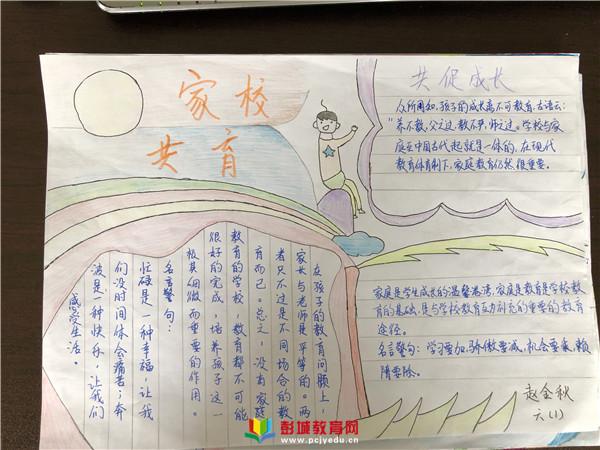 家校
共育
共促成长
众所周知，孩子的成长离不可教育，古语云：
"养不教，父之过，教不严，师之过。学校与家
庭在中国古代起就是一体的，在现代
教育体育制下，家庭教育仍然很重要。
在孩子的教育问题上，
家长与老师是平等的。两
者只不过是不同场合的教
育而已。总之，没有家庭
教育的学校教育都不可能
很好的完成，培养孩子这一
极其细微而重要的作用。
名言警句：
忙碌是一种幸福，让我
们没时间体会痛苦；奔
波是一种快乐，让我们
感受生活。
家庭是学生成长的温馨港湾，家庭是教育是学校教
育的基础，是与学校教育互为补充的重要的教育
途径。
名言警句：学习要加，骄傲要减，机会要乘，懒
惰要除。
赵金秋
六(1)
彭城教育网
www.pcjyedu.cn